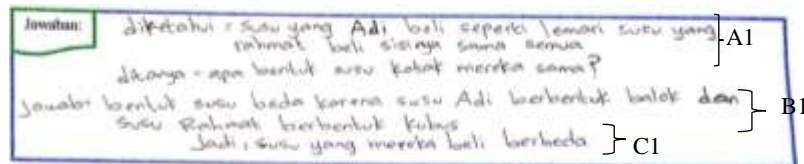 Jawaban:
diketahui = susu yang Adi beli seperti lemari susu yang
rahmat beli sisinya sama semua
A1
ditanya = apa bentuk susu kotak mereka sama?
Jawab = bentuk susu beda karena susu Adi berbentuk balok dan
susu Rahmat berbentuk kubus
B1
Jadi, susu yang mereka beli berbeda
C1